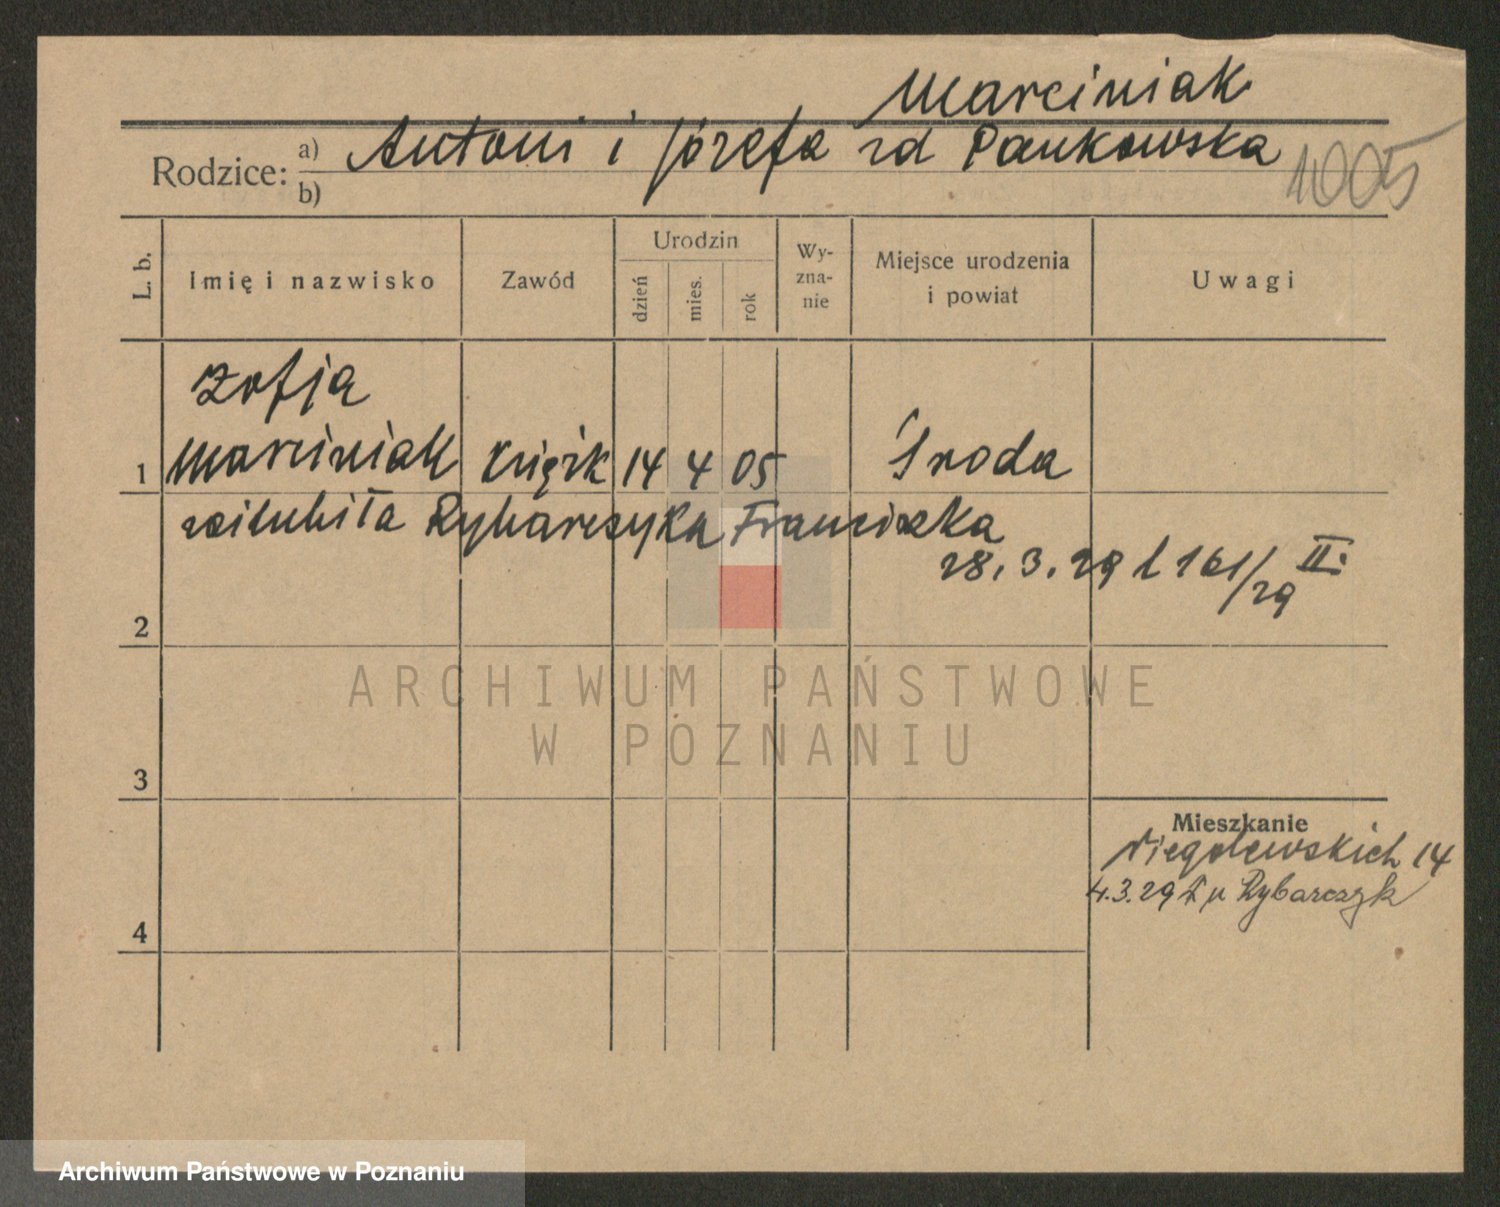 Marciniak
Rodzice: a) Antoni i Józefa zd Pankowska
b)
1005
L. b. Imię i nazwisko Zawód Urodzin dzień mies. rok Wy-zna-nie Miejsce urodzenia i powiat Uwagi
Zofja
1 Marciniak 14 4 05 Środa
zaślubiła Rybarczyka Franciszka
28. 3. 29 161/29 II.
2
ARCHIWUM PAŃSTWOWE
W POZNANIU
3
Mieszkanie
Niegolewskich 14
4.3.29 Rybarczyk
4
Archiwum Państwowe w Poznaniu